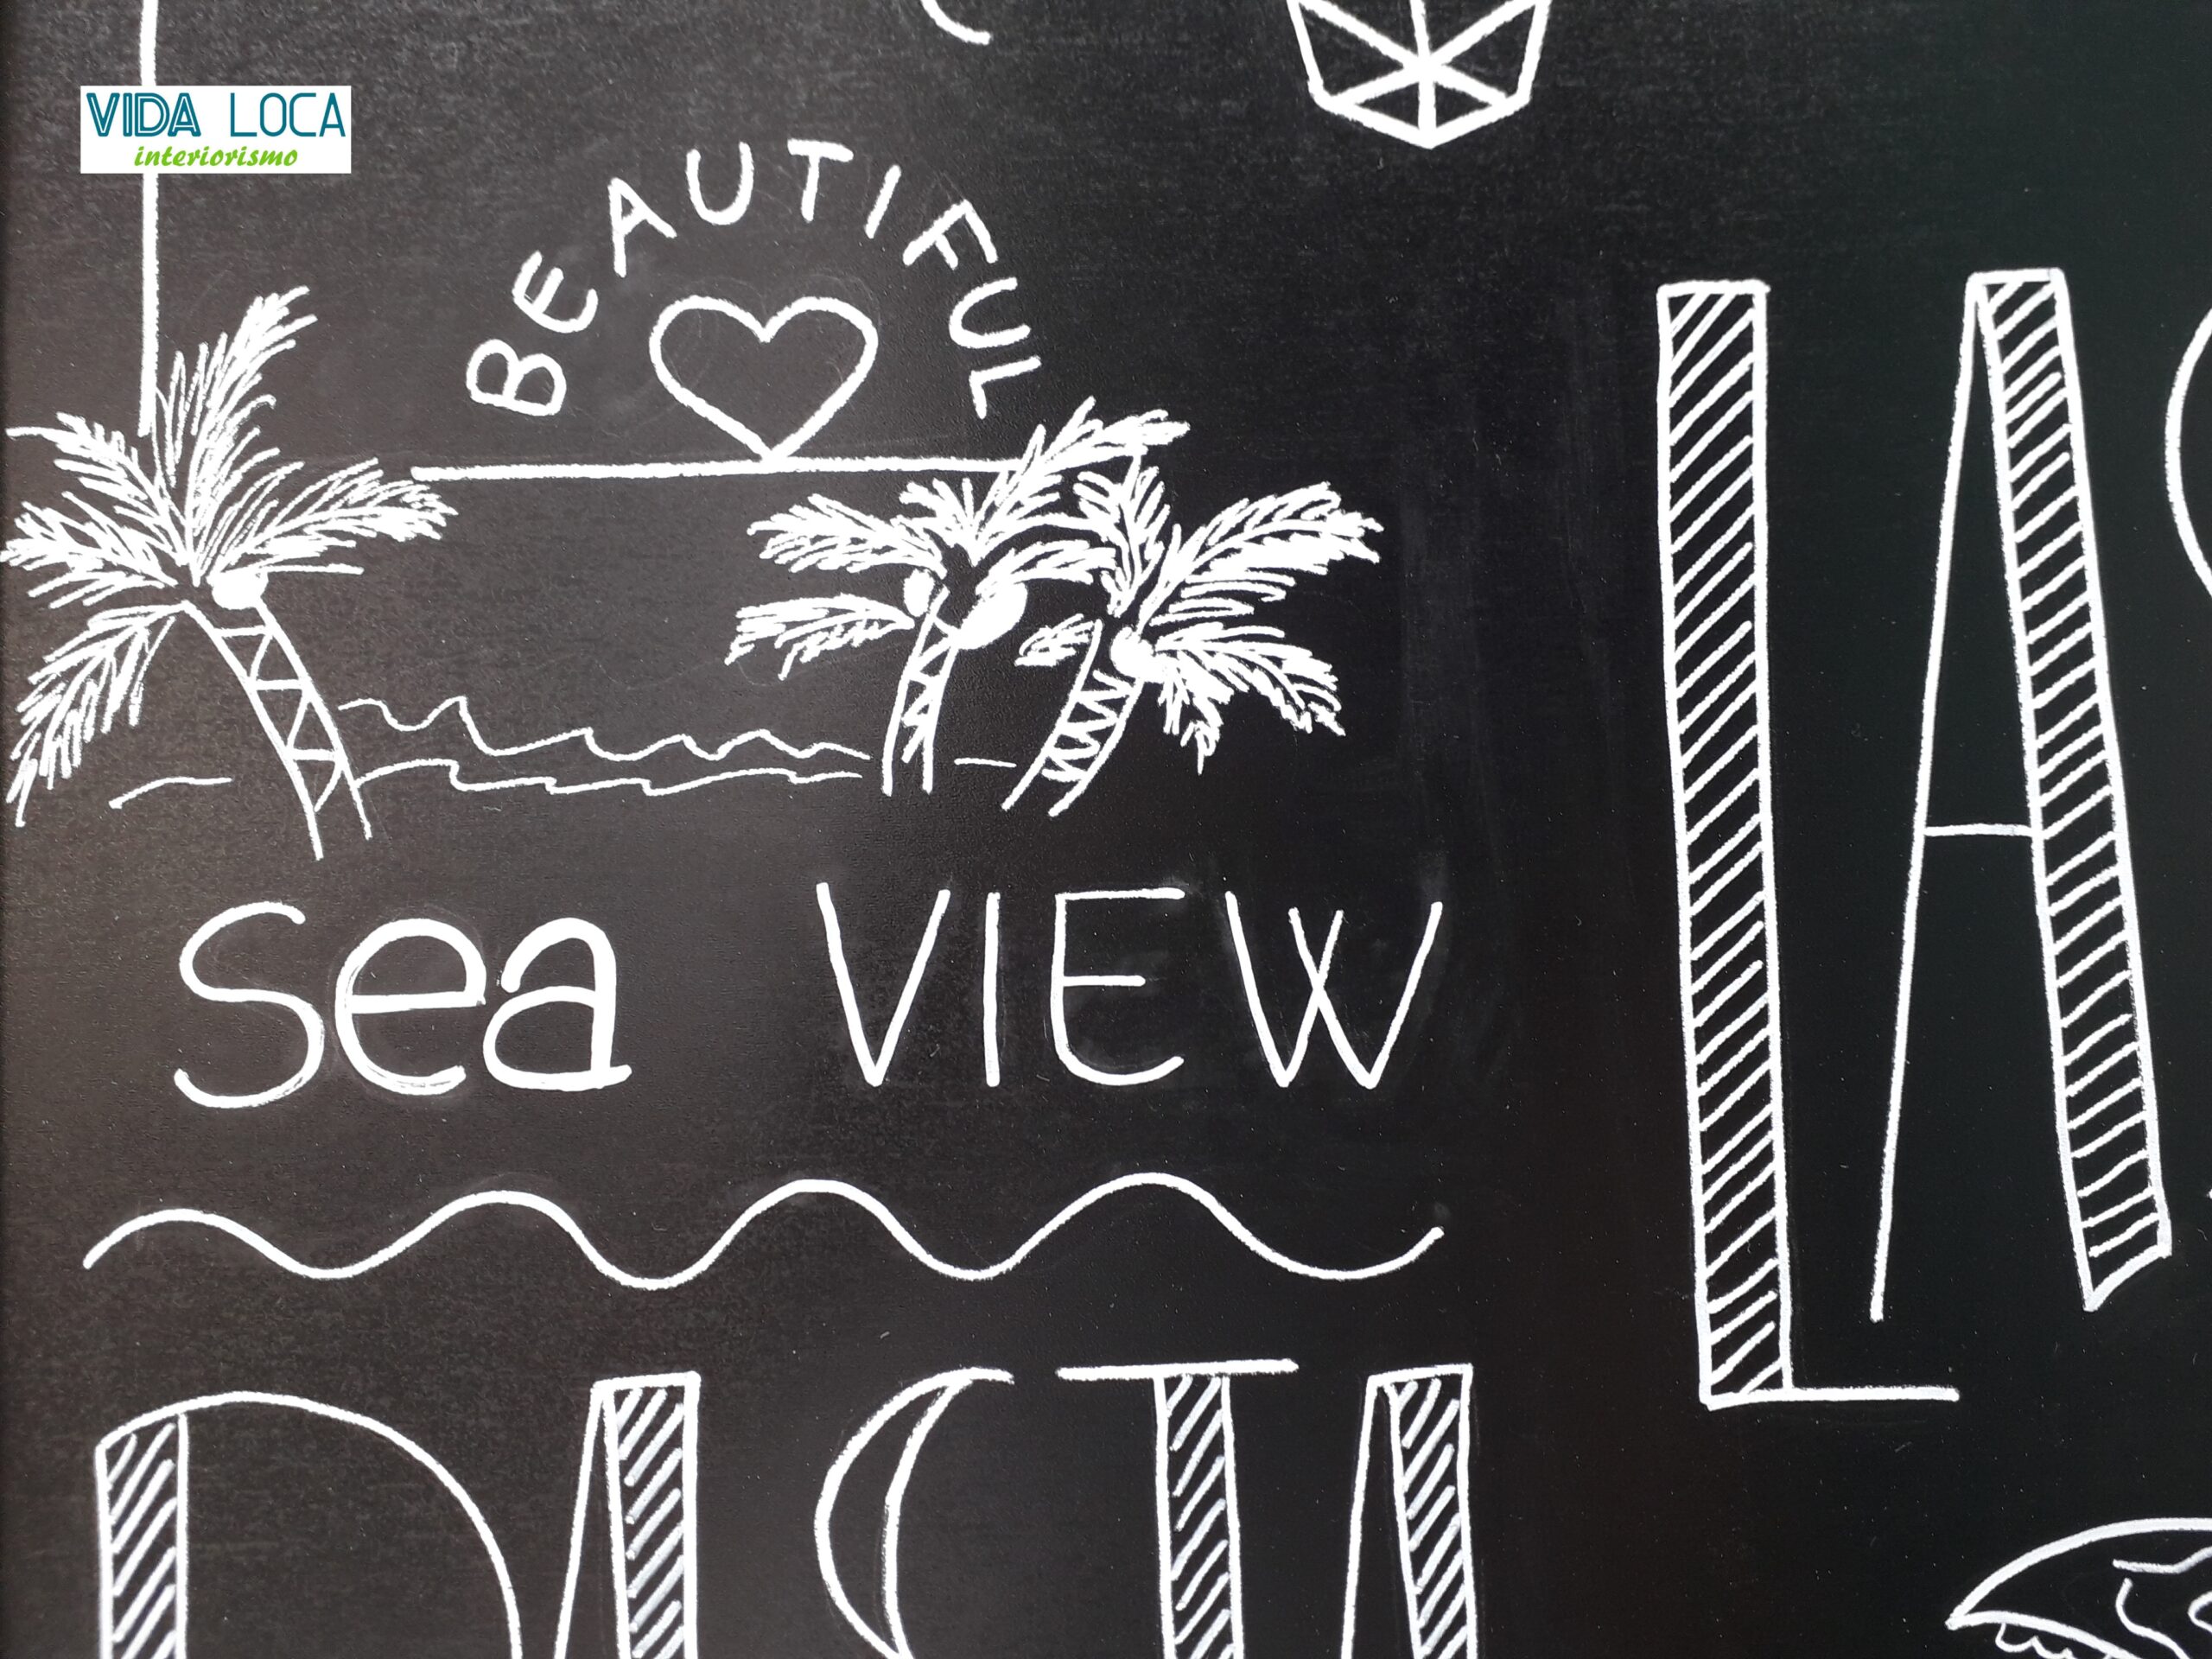 VIDA LOCA
interiorismo
BEAUTIFUL
sea VIEW
PASTA